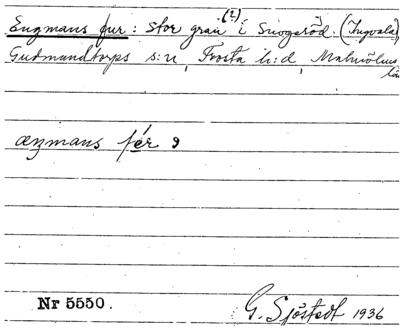 Engmans fur : stor gran (?) i Snogeröd. (Ingvala)
Gudmundtorps s:n, Frosta h:d, Malmöhus
län
æŋmans fér
Nr 5550.
G. Sjöstedt 1936